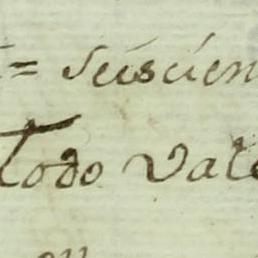 = Seiscien
Todo Vale